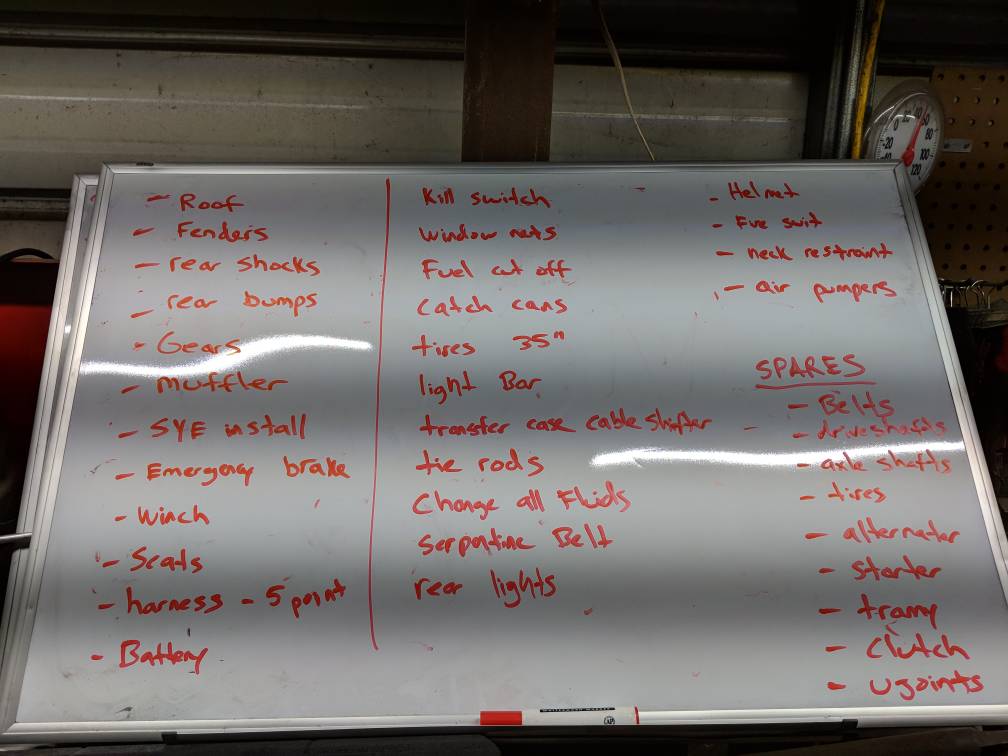 - Roof
- Fenders
- rear shocks
- rear bumps
- Gears
- muffler
- SYE install
- Emergency brake
- Winch
- Seats
- harness - 5 point
- Battery
Kill switch
window nets
Fuel cut off
catch cans
tires 35"
light Bar
transfer case cable shifter
tie rods
Change all Fluids
serpentine Belt
rear lights
- Helmet
- Fire suit
- neck restraint
- air pumpers
SPARES
- Belts
- driveshafts
- axle shafts
- tires
- alternater
- starter
- tranny
- Clutch
- ujoints
-20
0
20
80
100
120